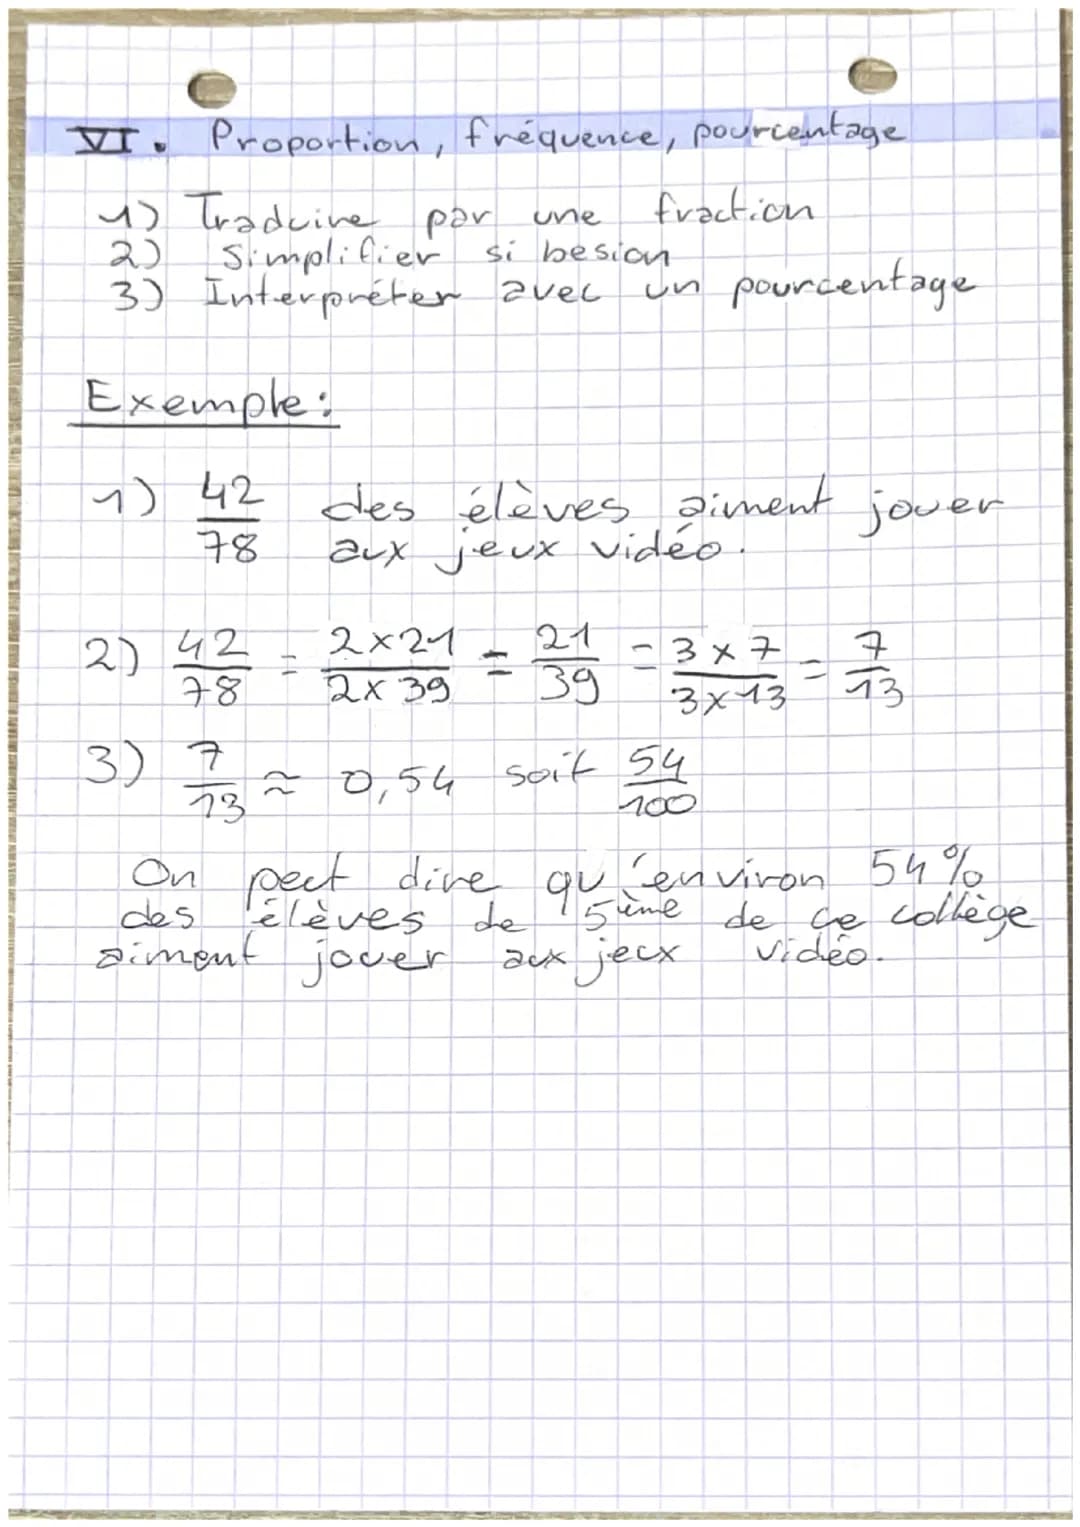 VI. Proportion, fréquence, pourcentage
1) Traduire par une fraction
2) Simplifier si besion
3) Interpréter avec un pourcentage
Exemple:
1) 42/78 des élèves aiment jouer
aux jeux vidéo.
2) 42/78 = 2×21/2×39 = 21/39 = 3×7/3×13 = 7/13
3) 7/13 ≈ 0,54 soit 54/100
On peut dire qu'environ 54%
des élèves de 5ème de ce collège
aiment jouer aux jeux vidéo.